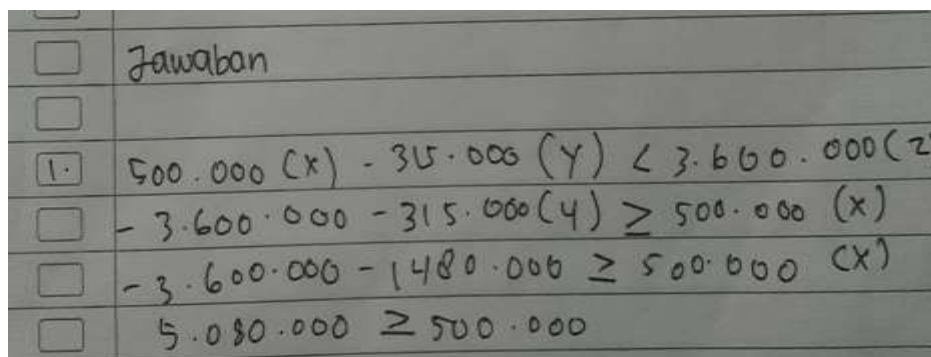 Jawaban
1. 500.000 (x) - 315.000 (y) < 3.600.000 (z
- 3.600.000 - 315.000 (y) ≥ 500.000 (x)
- 3.600.000 - 1480.000 ≥ 500.000 (x)
5.080.000 ≥ 500.000